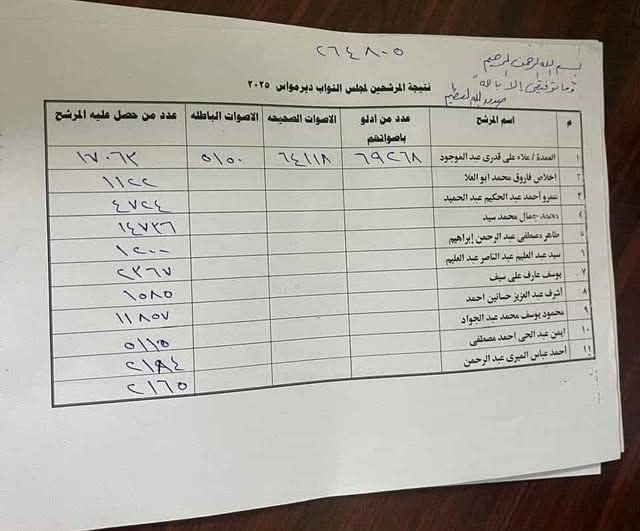 ٢٦٤٨٠٥
بسم الله الرحمن الرحيم
"وما توفيقي إلا بالله"
صدق الله العظيم
نتيجة المرشحين لمجلس النواب ديرمواس ٢٠٢٥
م اسم المرشح عدد من أدلو بأصواتهم الاصوات الصحيحه الاصوات الباطله عدد من حصل عليه المرشح
١ العمدة / علاء على قدرى عبد الموجود ٦٩٢٦٨ ٦٤١١٨ ٥١٥٠ ١٧٠٦٣
٢ اخلاص فاروق محمد ابو العلا ١١٢٢
٣ عمرو أحمد عبد الحكيم عبد الحميد ٤٧٢٤
٤ محمد جمال محمد سيد ١٤٧٣٦
٥ طاهر مصطفى عبد الرحمن إبراهيم ١٢٠٠
٦ سيد عبد العليم عبد الناصر عبد العليم ٢٣٦٧
٧ يوسف عارف على سيف ١٥٨٥
٨ أشرف عبد العزيز حسانين احمد ١١٨٥٧
٩ محمود يوسف محمد عبد الجواد ٥١١٥
١٠ ايمن عبد الحى احمد مصطفى ٢١٨٤
١١ أحمد عباس الميرى عبد الرحمن ٢١٦٥